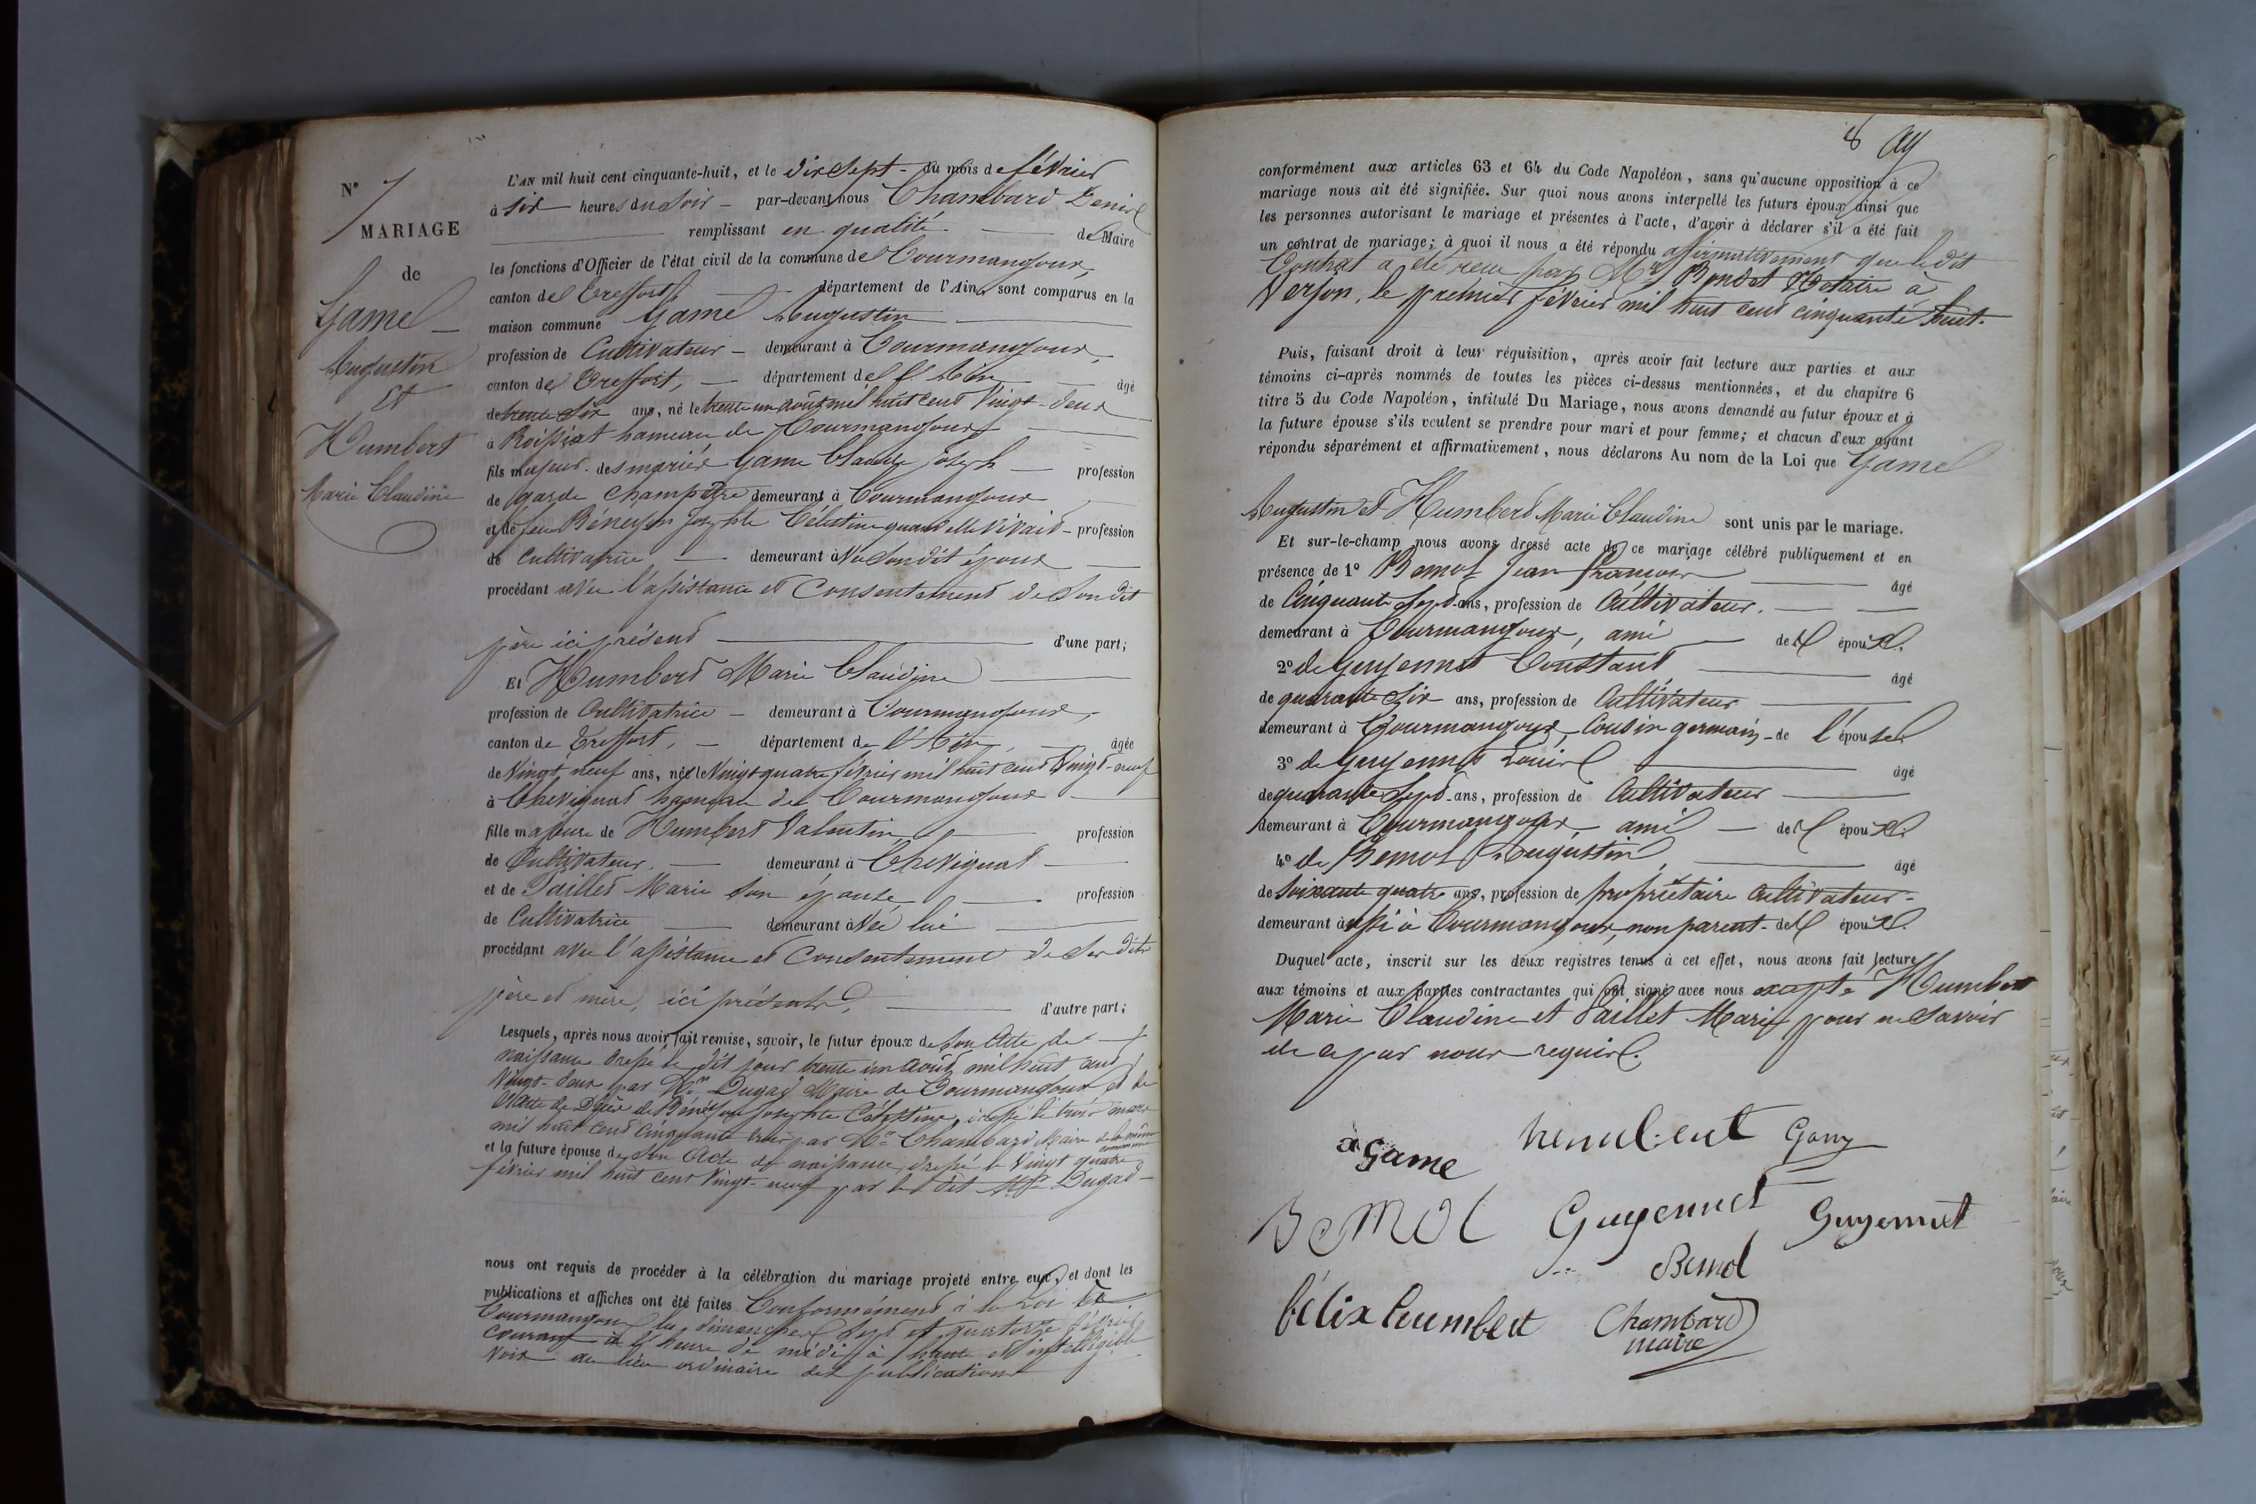 N° 7
MARIAGE
de
Game
Augustin
Et
Humbert
Marie Claudine
L'AN mil huit cent cinquante-huit, et le dix sept du mois de février
à six heures du soir par-devant nous Chambard Denis
remplissant en qualité de Maire
les fonctions d'Officier de l'état civil de la commune de Courmangoux,
canton de Treffort département de l'Ain, sont comparus en la
maison commune Game Augustin
profession de Cultivateur demeurant à Courmangoux,
canton de Treffort, département de l'Ain âgé
de trente six ans, né le trente un août mil huit cent vingt-deux
à Roissiat hameau de Courmangoux
fils majeur des mariés Game Claude Joseph profession
de garde champêtre demeurant à Courmangoux
et de feue Joséphte Célestine quand elle vivait profession
de cultivatrice demeurant avec son dit époux
procédant avec l'assistance et consentement de son dit
père ici présent d'une part;
Et Humbert Marie Claudine
profession de Cultivatrice demeurant à Courmangoux,
canton de Treffort, département de l'Ain âgée
de Vingt neuf ans, née le Vingt quatre février mil huit cent Vingt-neuf
à Chevignat hameau de Courmangoux
fille majeure de Humbert Valentin profession
de Cultivateur, demeurant à Chevignat
et de Paillet Marie son épouse profession
de Cultivatrice demeurant avec lui
procédant avec l'assistance et consentement de ses dits
père et mère, ici présents, d'autre part;
Lesquels, après nous avoir fait remise, savoir, le futur époux de son Acte de
naissance dressé le dit jour trente un août mil huit cent
Vingt-deux par Mr Dugad Maire de Courmangoux et de
l'acte de Décès de Joséphte Célestine, dressé le trois mars
mil huit cent cinquante trois par Mr Chambard Maire de la même commune
et la future épouse de son Acte de naissance, dressé le Vingt quatre
février mil huit cent Vingt-neuf par le dit Mr Dugad
nous ont requis de procéder à la célébration du mariage projeté entre eux, et dont les
publications et affiches ont été faites Conformément à la Loi à
Courmangoux les dimanches sept et quatorze février
courant à l'heure de midi à haute et intelligible
voix au lieu ordinaire des publications
8
conformément aux articles 63 et 64 du Code Napoléon, sans qu'aucune opposition à ce
mariage nous ait été signifiée. Sur quoi nous avons interpellé les futurs époux ainsi que
les personnes autorisant le mariage et présentes à l'acte, d'avoir à déclarer s'il a été fait
un contrat de mariage; à quoi il nous a été répondu affirmativement que le dit
Contrat a été reçu par Mr Bondet Notaire à
Verjon, le premier février mil huit cent cinquante huit.
Puis, faisant droit à leur réquisition, après avoir fait lecture aux parties et aux
témoins ci-après nommés de toutes les pièces ci-dessus mentionnées, et du chapitre 6
titre 5 du Code Napoléon, intitulé Du Mariage, nous avons demandé au futur époux et à
la future épouse s'ils veulent se prendre pour mari et pour femme; et chacun d'eux ayant
répondu séparément et affirmativement, nous déclarons Au nom de la Loi que Game
Augustin et Humbert Marie Claudine sont unis par le mariage.
Et sur-le-champ nous avons dressé acte de ce mariage célébré publiquement et en
présence de 1° Bemol Jean François âgé
de Cinquante Sept ans, profession de Cultivateur,
demeurant à Courmangoux, ami des époux.
2° de Guyennet Constant âgé
de quarante six ans, profession de Cultivateur
demeurant à Courmangoux, Cousin germain de l'épouse
3° de Guyennet Louis âgé
de quarante sept ans, profession de Cultivateur
demeurant à Courmangoux ami des époux.
4° de Bemol Augustin âgé
de soixante quatre ans, profession de propriétaire cultivateur
demeurant aussi à Courmangoux, non parent des époux.
Duquel acte, inscrit sur les deux registres tenus à cet effet, nous avons fait lecture
aux témoins et aux parties contractantes qui ont signé avec nous excepté Humbert
Marie Claudine et Paillet Marie pour ne savoir
de ce par nous requis.
a Game humbert Gam
Bemol Guyennet Guyennet
Bemol
félix humbert Chambard
maire